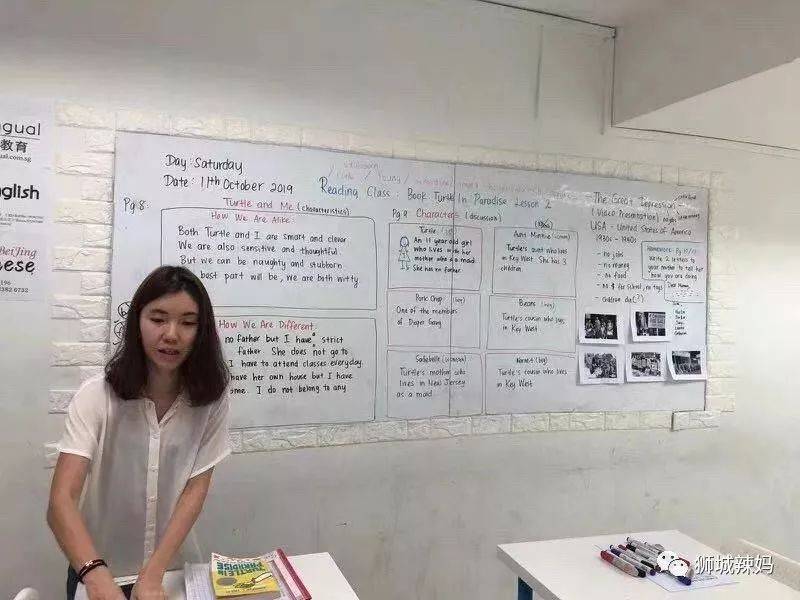 gual
教育
ual.com.sg
nglish
BeiJing
nese
196
Day: Saturday
Date: 11th October 2019
Reading Class: Book Turtle In Paradise Lesson 2
Pg 8:
Turtle and Me (characteristics)
How We Are Alike:
Both Turtle and I are smart and clever
We are also sensitive and thoughtful.
But we can be naughty and stubborn
best part will be, we are both witty
How We Are Different:
no Father but I have strict
father She does not go to
I have to attend classes everyday.
have her own house but I have
I do not belong to any
Pg 9 Characters (discussion)
Turtle
An 11 year old girl
who lives with her
mother who is a maid.
She has no father
Aunt Minnie
Turtle's aunt who lives
in Key West She has 3
children
Pork Chop (boy)
One of the members
of Diaper Gang
Beans (boy)
Turtle's cousin who lives
in Key West
Sadiebelle (woman)
Turtle's mother who
lives in New Jersey
as a maid
Kermit (boy)
Turtle's cousin who lives
in Key West
The Great Depression
(Video Presentation)
USA - United States of America
1930s - 1940s
- no jobs
- no money
- no food
- no $ for school, no toys
- children die (?)
Homework: Pg
Write 2 letters to
your mother to tell her
how you are doing
Dear Mommy,
TURTLE IN
PARADISE
狮城辣妈